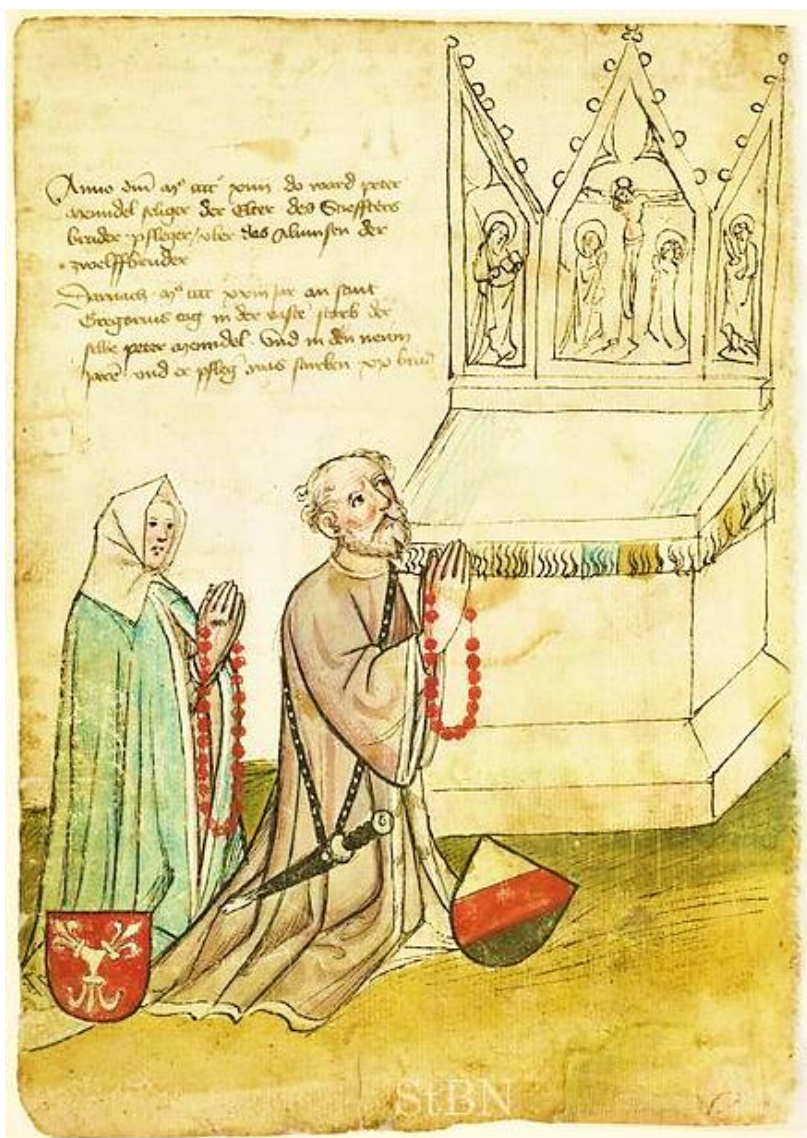 Anno dm̄ mº cccc xiiii do ward peter
mendel seliger der Elter des Stieffters
bruder pfleger vber das Almusen der
zwelffbruder
Darnach mº cccc xxiii jar an sant
Gregorius tag in der vaste starb der
selbe peter mendel Vnd in den newn
jaren vnd er pfleg was sturben xx brud
StBN